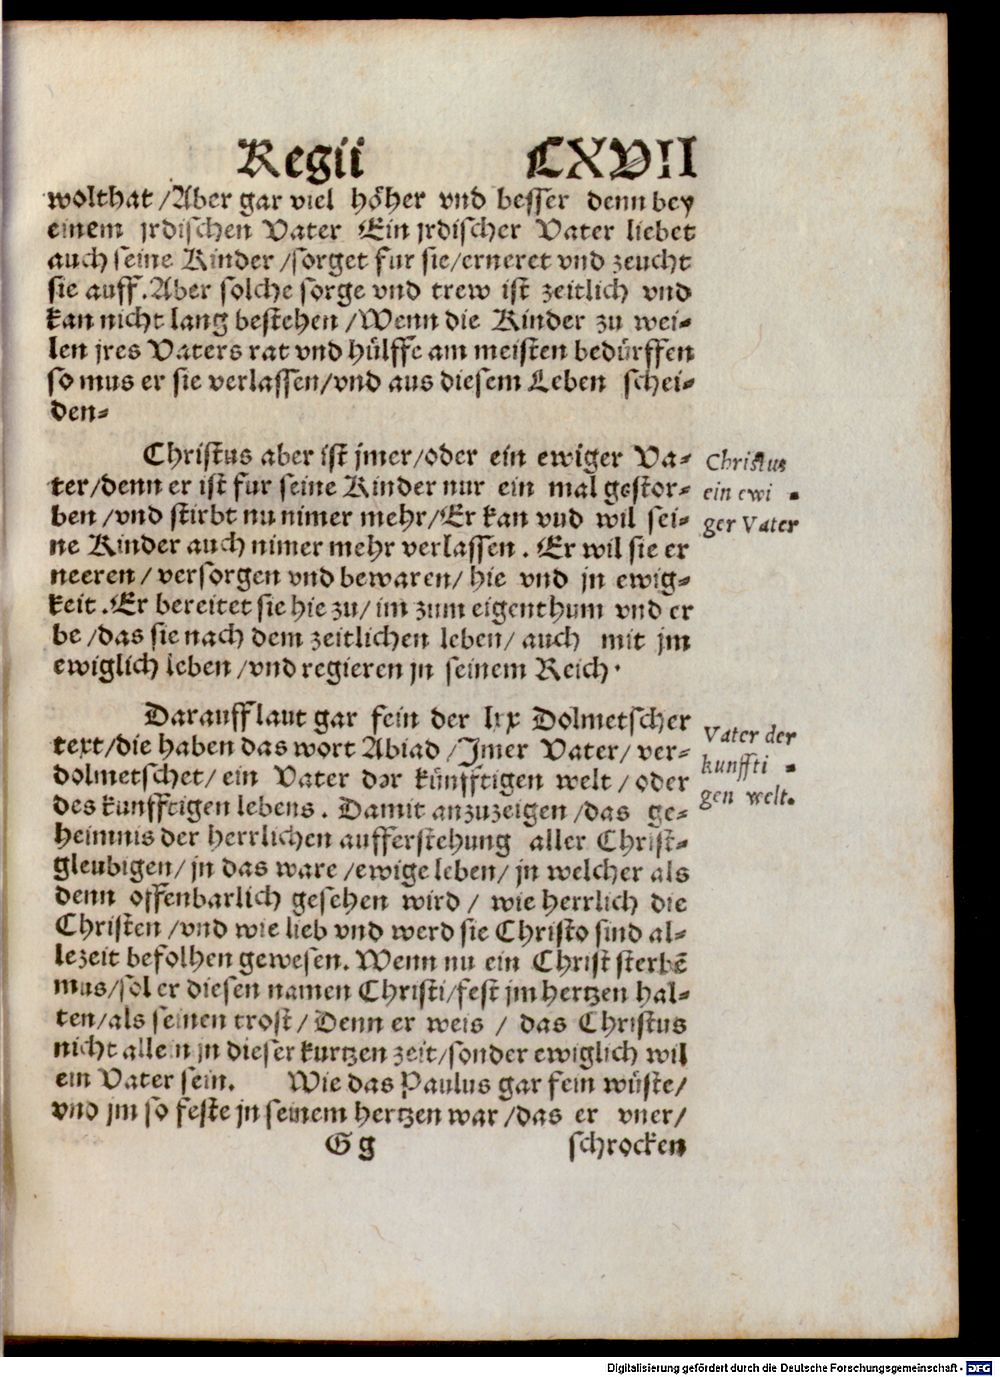 Regii CXVII
wolthat /Aber gar viel höher vnd besser denn bey
einem jrdischen Vater Ein jrdischer Vater liebet
auch seine Kinder /sorget fur sie/erneret vnd zeucht
sie auff.Aber solche sorge vnd trew ist zeitlich vnd
kan nicht lang bestehen /Wenn die Kinder zu wei⸗
len jres Vaters rat vnd hülffe am meisten bedürffen
so mus er sie verlassen/vnd aus diesem Leben schei⸗
den⸗
Christus aber ist jmer/oder ein ewiger Va⸗
ter/denn er ist fur seine Kinder nur ein mal gestor⸗
ben /vnd stirbt nu nimer mehr/Er kan vnd wil sei⸗
ne Kinder auch nimer mehr verlassen . Er wil sie er
neeren / versorgen vnd bewaren/ hie vnd jn ewig⸗
keit .Er bereitet sie hie zu/ im zum eigenthum vnd er
be /das sie nach dem zeitlichen leben/ auch mit jm
ewiglich leben /vnd regieren jn seinem Reich ·
Christus
ein ewi ⸗
ger Vater
Darauff laut gar fein der lxx Dolmetscher
text/die haben das wort Abiad /Jmer Vater/ ver⸗
dolmetschet/ ein Vater der künfftigen welt / oder
des kunfftigen lebens . Damit anzuzeigen /das ge⸗
heimnis der herrlichen aufferstehung aller Christ⸗
gleubigen/ jn das ware /ewige leben/ jn welcher als
denn offenbarlich gesehen wird / wie herrlich die
Christen /vnd wie lieb vnd werd sie Christo sind al⸗
lezeit befolhen gewesen. Wenn nu ein Christ sterbē
mus/sol er diesen namen Christi/fest jm hertzen hal⸗
ten/als seinen trost/ Denn er weis / das Christus
nicht allein jn dieser kurtzen zeit/sonder ewiglich wil
ein Vater sein. Wie das Paulus gar fein wüste/
vnd jm so feste jn seinem hertzen war /das er vner/
Vater der
kunffti ⸗
gen welt.
G g schrocken
Digitalisierung gefördert durch die Deutsche Forschungsgemeinschaft - DFG